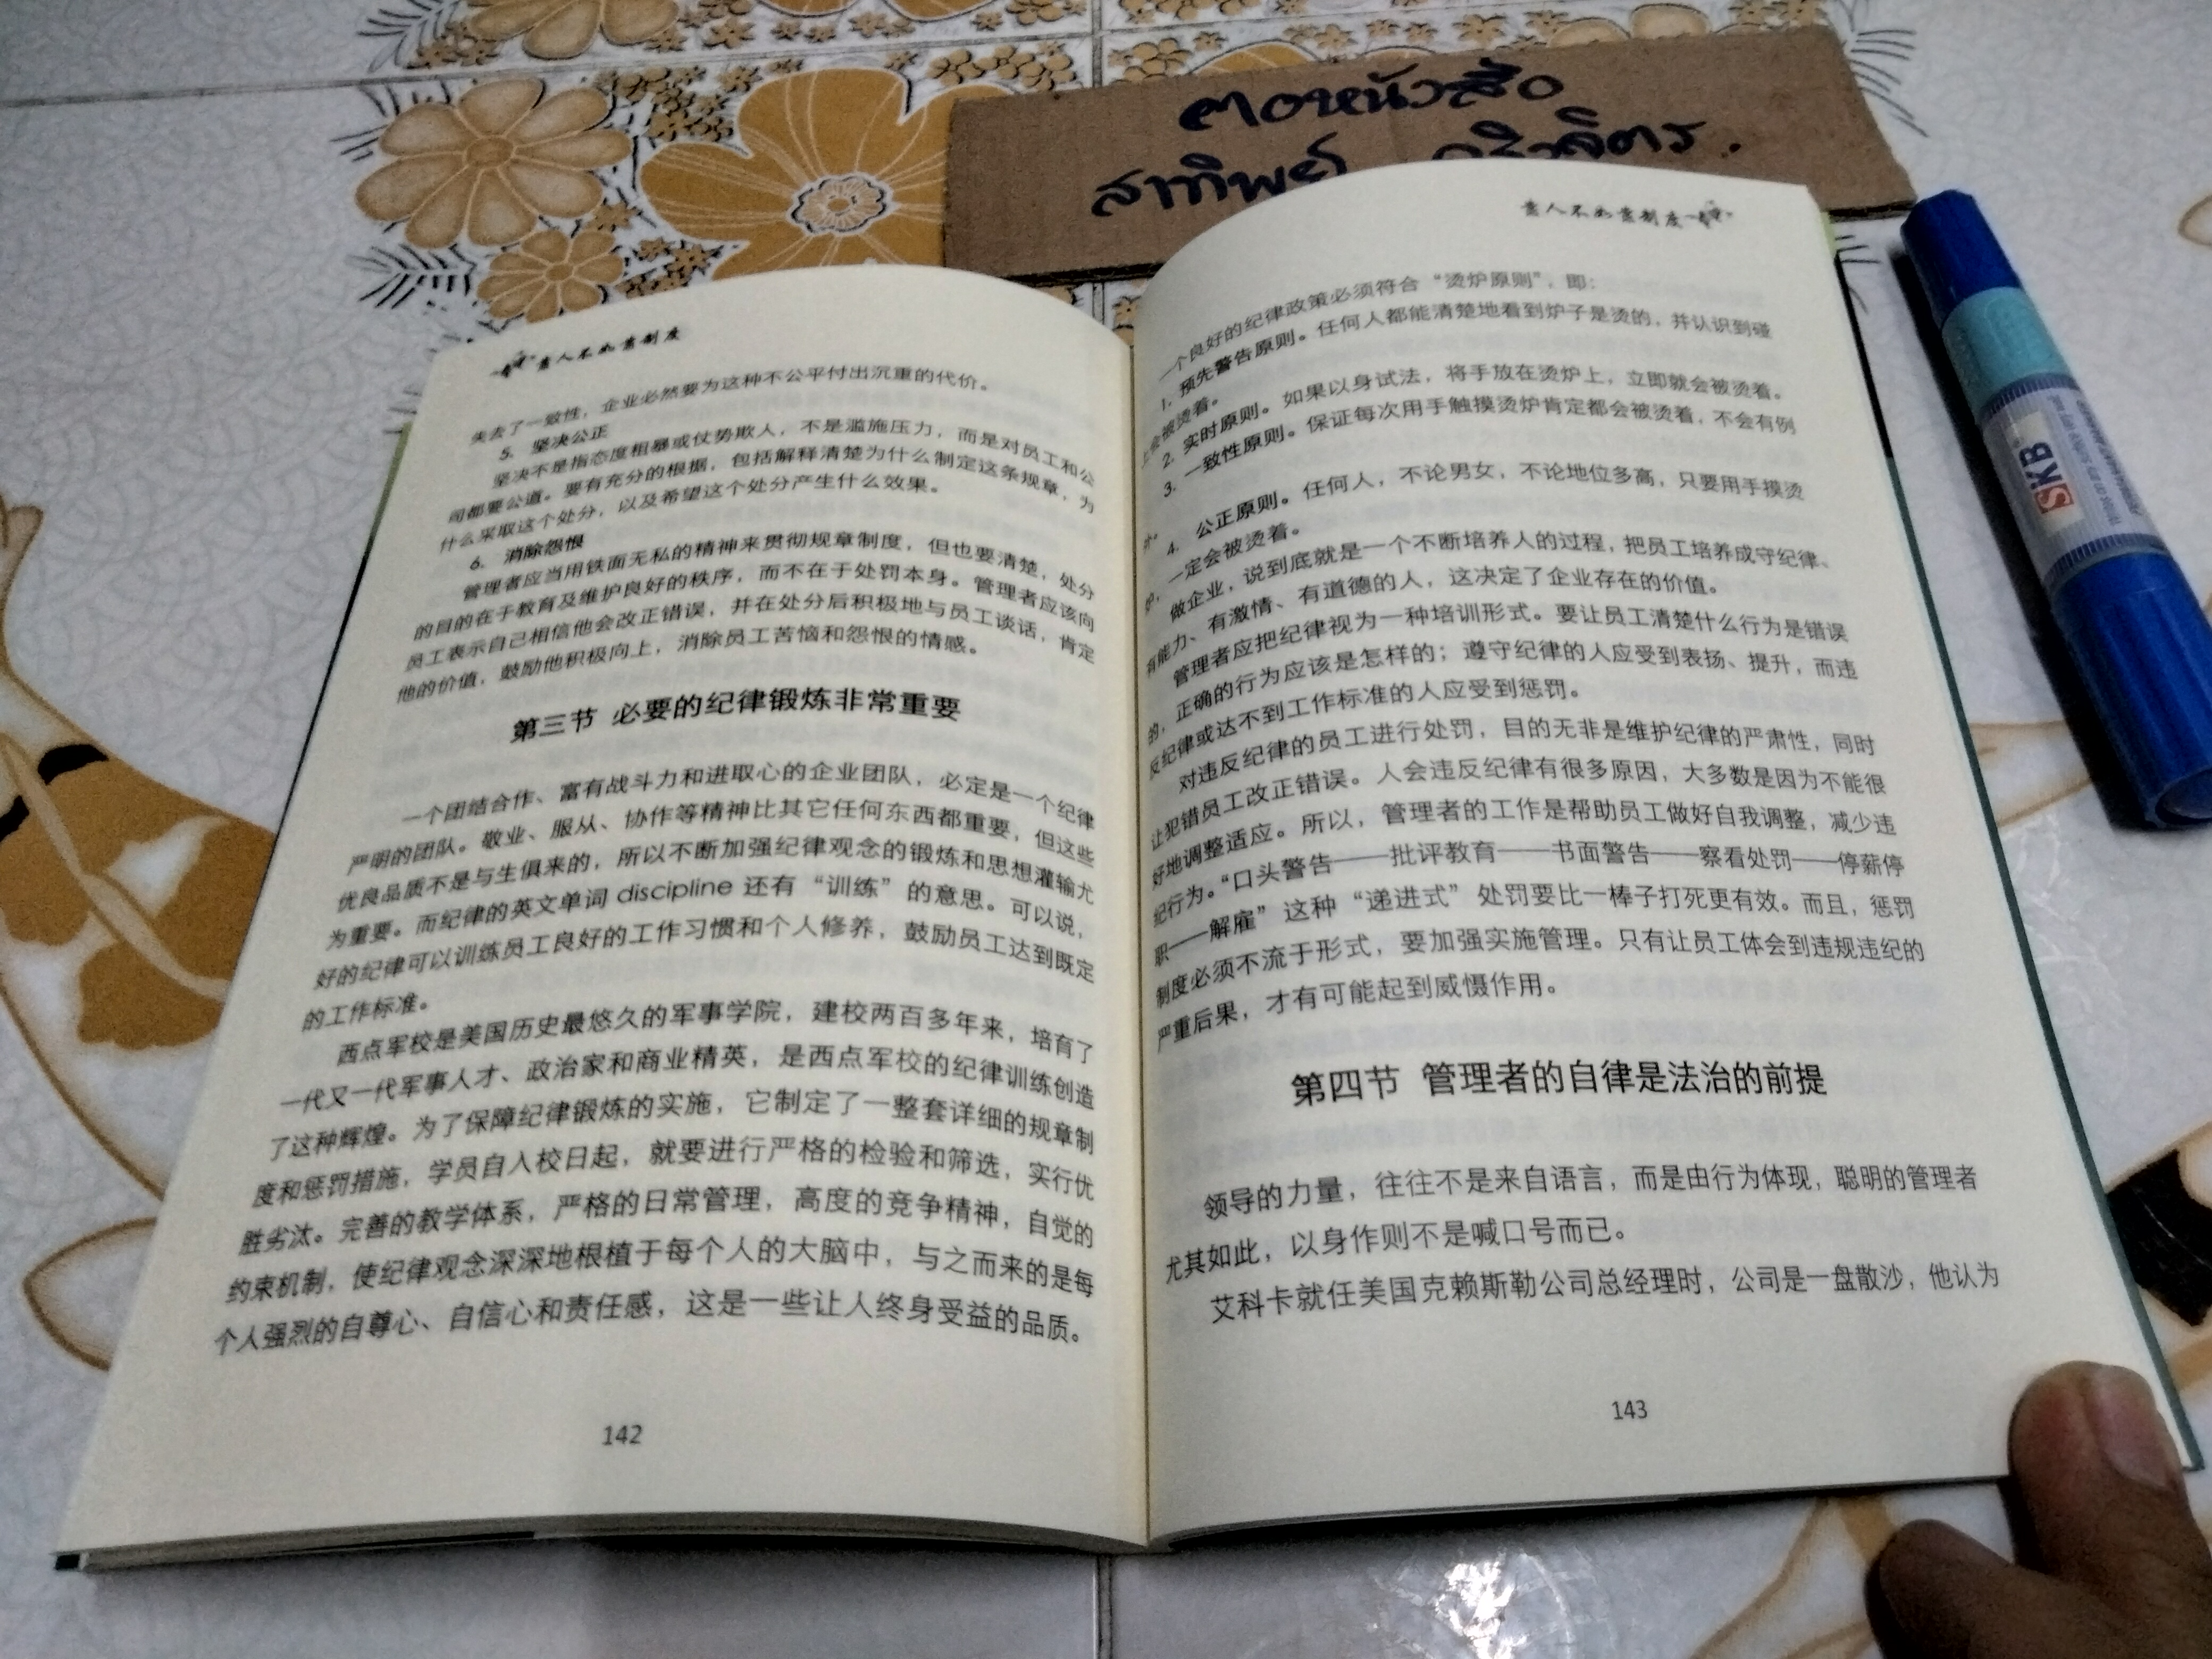 靠人不如靠制度
失去了一致性，企业必然要为这种不公平付出沉重的代价。
5. 坚决公正
坚决不是指态度粗暴或仗势欺人，不是滥施压力，而是对员工和公
司都要公道。要有充分的根据，包括解释清楚为什么制定这条规章，为
什么采取这个处分，以及希望这个处分产生什么效果。
6. 消除怨恨
管理者应当用铁面无私的精神来贯彻规章制度，但也要清楚，处分
的目的在于教育及维护良好的秩序，而不在于处罚本身。管理者应该向
员工表示自己相信他会改正错误，并在处分后积极地与员工谈话，肯定
他的价值，鼓励他积极向上，消除员工苦恼和怨恨的情感。
第三节 必要的纪律锻炼非常重要
一个团结合作、富有战斗力和进取心的企业团队，必定是一个纪律
严明的团队。敬业、服从、协作等精神比其它任何东西都重要，但这些
优良品质不是与生俱来的，所以不断加强纪律观念的锻炼和思想灌输尤
为重要。而纪律的英文单词 discipline 还有“训练”的意思。可以说，
好的纪律可以训练员工良好的工作习惯和个人修养，鼓励员工达到既定
的工作标准。
西点军校是美国历史最悠久的军事学院，建校两百多年来，培育了
一代又一代军事人才、政治家和商业精英，是西点军校的纪律训练创造
了这种辉煌。为了保障纪律锻炼的实施，它制定了一整套详细的规章制
度和惩罚措施，学员自入校日起，就要进行严格的检验和筛选，实行优
胜劣汰。完善的教学体系，严格的日常管理，高度的竞争精神，自觉的
约束机制，使纪律观念深深地根植于每个人的大脑中，与之而来的是每
个人强烈的自尊心、自信心和责任感，这是一些让人终身受益的品质。
142
靠人不如靠制度
一个良好的纪律政策必须符合“烫炉原则”，即：
1. 预先警告原则。任何人都能清楚地看到炉子是烫的，并认识到碰
上会被烫着。
2. 实时原则。如果以身试法，将手放在烫炉上，立即就会被烫着。
3. 一致性原则。保证每次用手触摸烫炉肯定都会被烫着，不会有例
外。
4. 公正原则。任何人，不论男女，不论地位多高，只要用手摸烫
炉，一定会被烫着。
做企业，说到底就是一个不断培养人的过程，把员工培养成守纪律、
有能力、有激情、有道德的人，这决定了企业存在的价值。
管理者应把纪律视为一种培训形式。要让员工清楚什么行为是错误
的，正确的行为应该是怎样的；遵守纪律的人应受到表扬、提升，而违
反纪律或达不到工作标准的人应受到惩罚。
对违反纪律的员工进行处罚，目的无非是维护纪律的严肃性，同时
让犯错员工改正错误。人会违反纪律有很多原因，大多数是因为不能很
好地调整适应。所以，管理者的工作是帮助员工做好自我调整，减少违
纪行为。“口头警告——批评教育——书面警告——察看处罚——停薪停
职——解雇”这种“递进式”处罚要比一棒子打死更有效。而且，惩罚
制度必须不流于形式，要加强实施管理。只有让员工体会到违规违纪的
严重后果，才有可能起到威慑作用。
第四节 管理者的自律是法治的前提
领导的力量，往往不是来自语言，而是由行为体现，聪明的管理者
尤其如此，以身作则不是喊口号而已。
艾科卡就任美国克赖斯勒公司总经理时，公司是一盘散沙，他认为
143
ตอหนังสือ
สาทิพย์
SKB